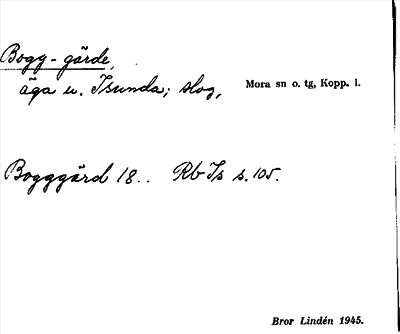 Bogg-gärde,
äga u. Isunda; slog, Mora sn o. tg, Kopp. l.
Bogggärd 18.. Rb Is s. 105.
Bror Lindén 1945.